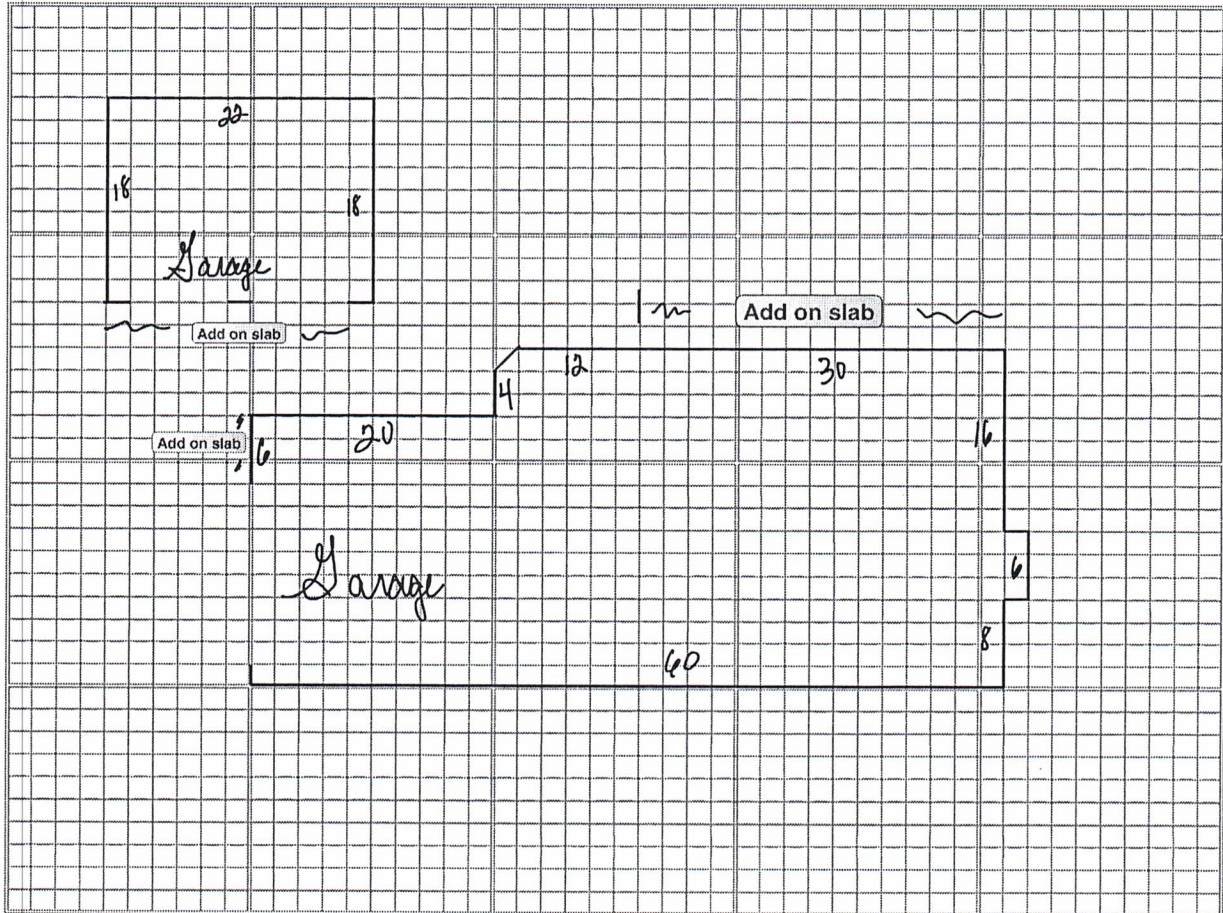 22
18
18
Garage
Add on slab
Add on slab
12
30
4
Add on slab
6
20
16
Garage
6
8
60